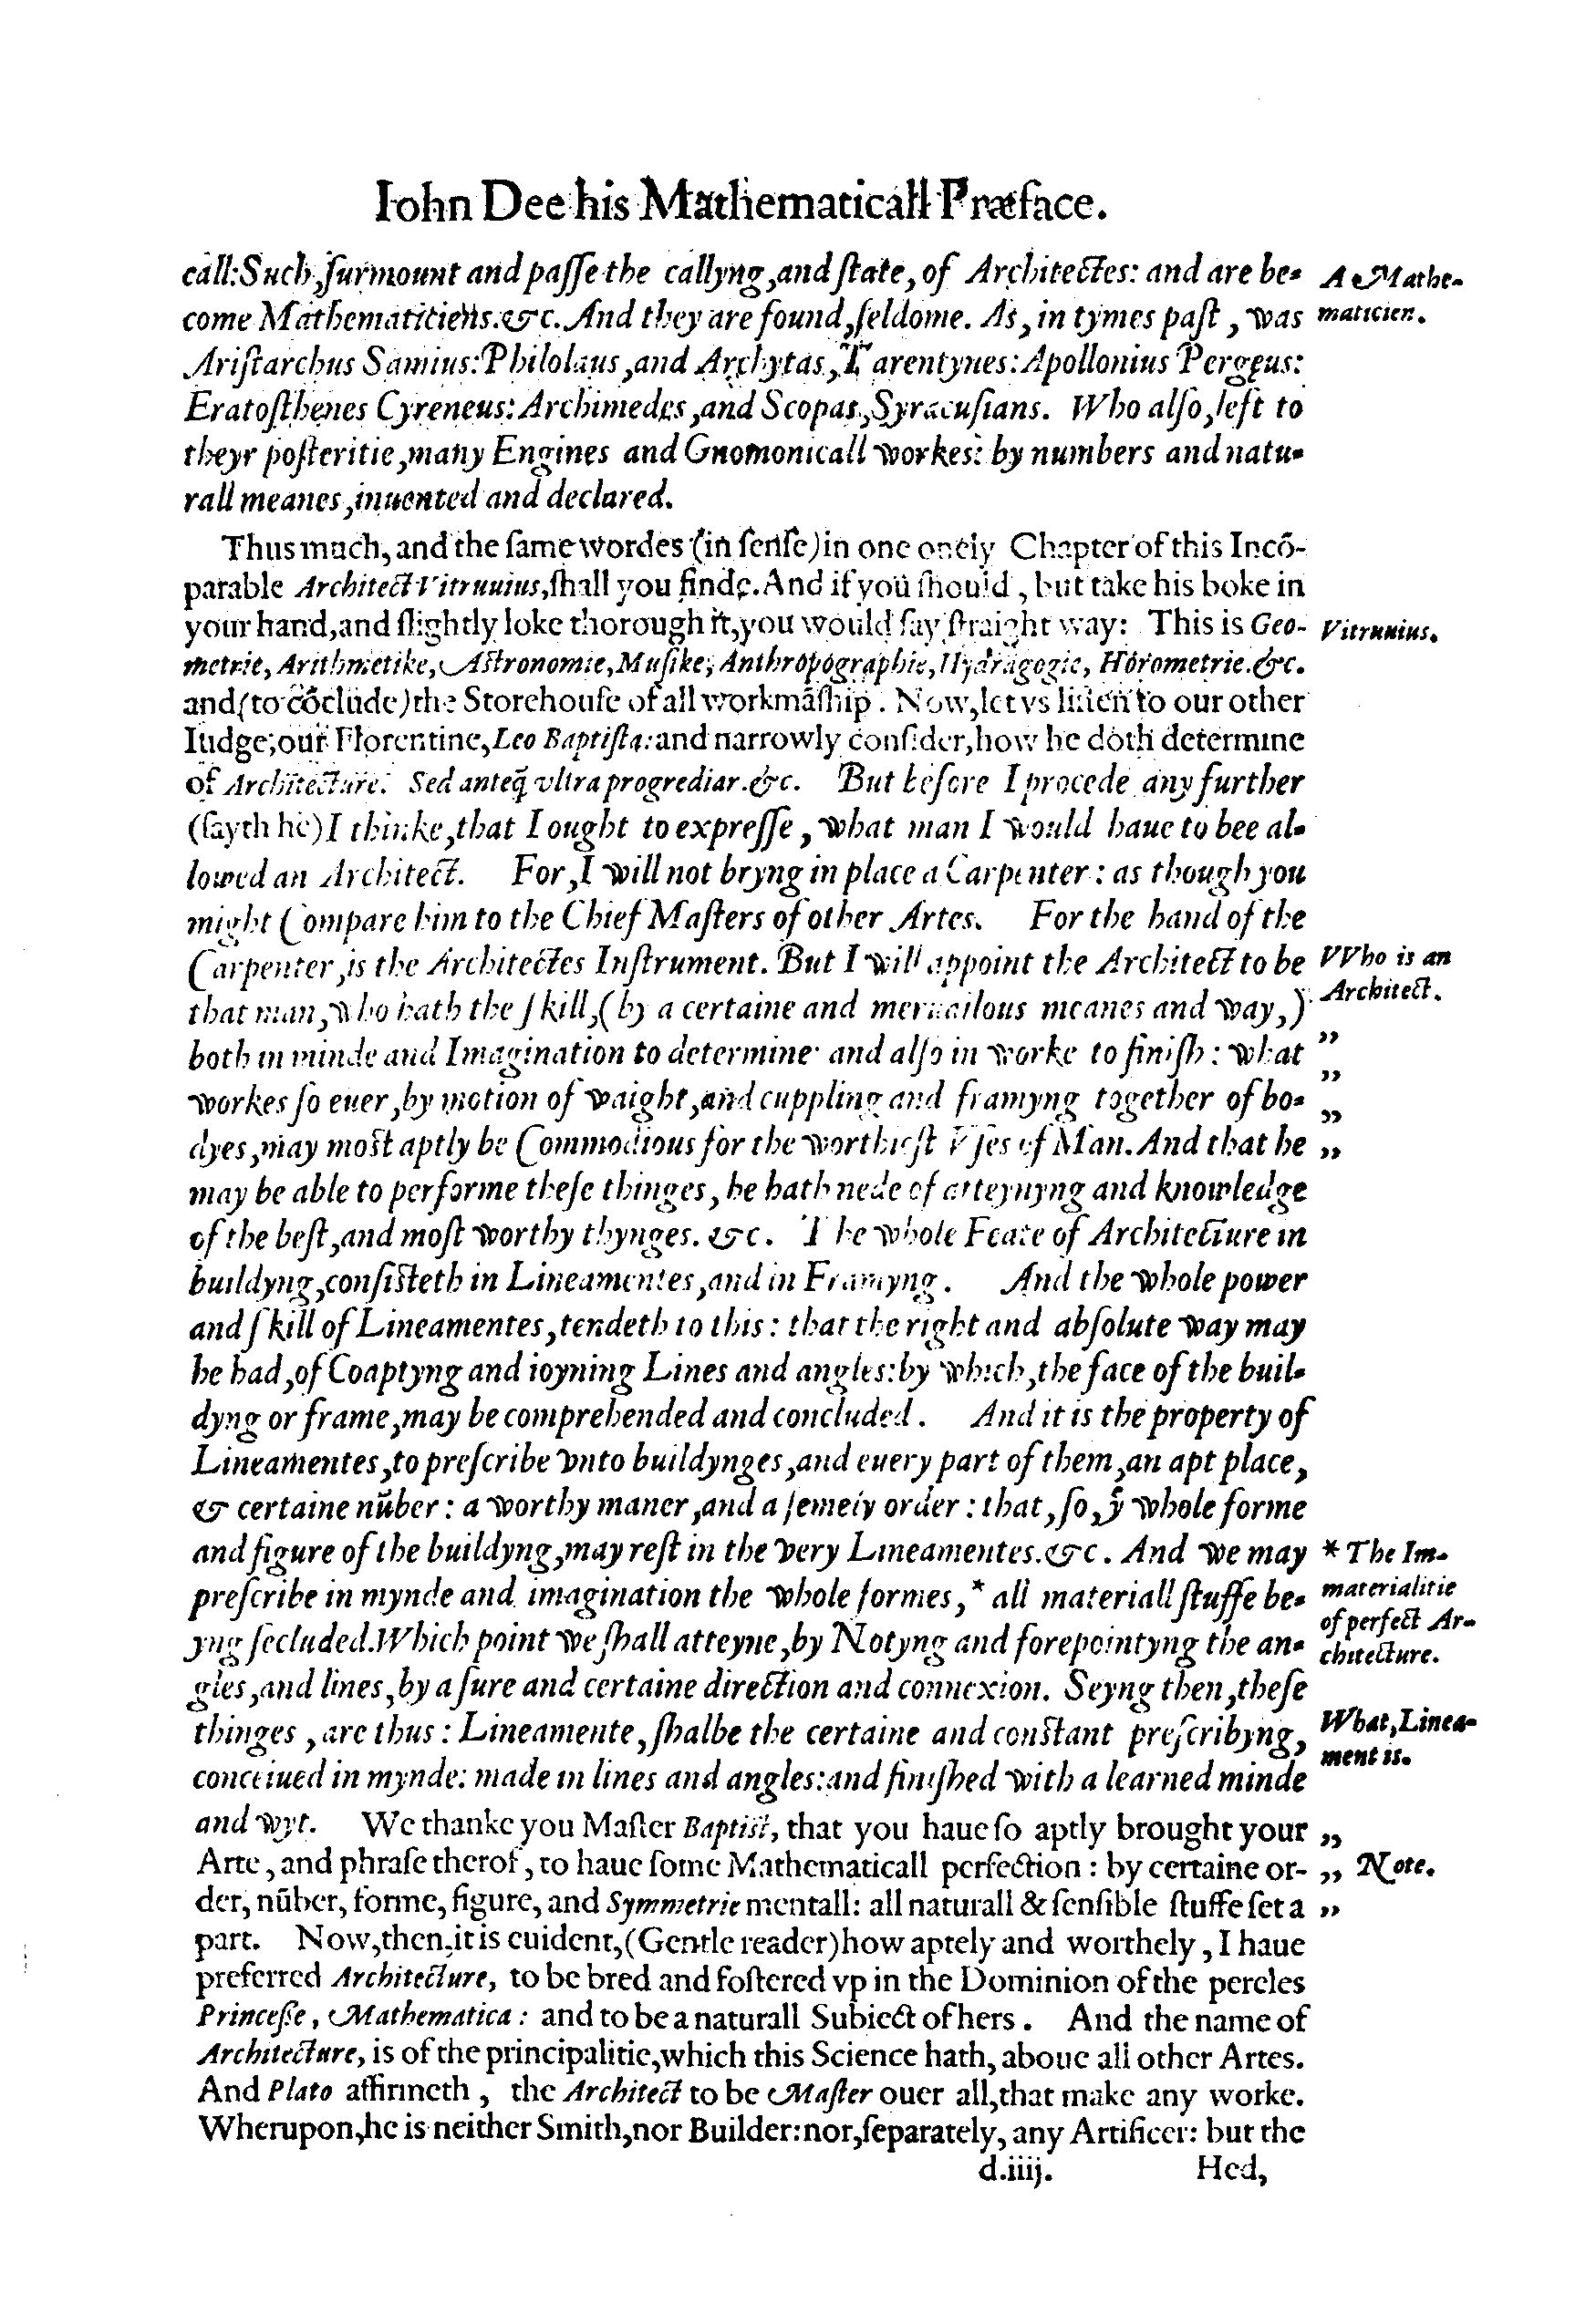 Iohn Dee his Mathematicall Præface.
call: Such, ſurmount and paſſe the callyng, and ſtate, of Architectes: and are be-
A Mathe-
come Mathematiciens. &c. And they are found, ſeldome. As, in tymes paſt, was
maticien.
Ariſtarchus Samius: Philolaus, and Archytas, Tarentynes: Apollonius Pergeus:
Eratoſthenes Cyreneus: Archimedes, and Scopas, Syracuſians. Who alſo, left to
theyr poſteritie, many Engines and Gnomonicall workes: by numbers and natu-
rall meanes, inuented and declared.
Thus much, and the ſame wordes (in ſenſe) in one onely Chapter of this Incõ-
parable Architect Vitruuius, ſhall you finde. And if you ſhould, but take his boke in
your hand, and ſlightly loke thorough it, you would ſay ſtraight way: This is Geo-
Vitruuius.
metrie, Arithmetike, Aſtronomie, Muſike, Anthropographie, Hydragogie, Horometrie. &c.
and (to cõclude) the Storehouſe of all workmãſhip. Now, let vs liſten to our other
Iudge, our Florentine, Leo Baptiſta: and narrowly conſider, how he doth determine
of Architecture. Sed anteq̃ vltra progrediar. &c. But before I procede any further
(ſayth he) I thinke, that I ought to expreſſe, what man I would haue to bee al-
lowed an Architect. For, I will not bryng in place a Carpenter: as though you
might Compare him to the Chief Maſters of other Artes. For the hand of the
Carpenter, is the Architectes Inſtrument. But I will appoint the Architect to be
VVho is an
that man, who hath the ſkill, (by a certaine and meruailous meanes and way,)
Architect.
both in minde and Imagination to determine and alſo in worke to finiſh: what
”
workes ſo euer, by motion of waight, and cuppling and framyng together of bo-
”
”
dyes, may moſt aptly be Commodious for the worthieſt Vſes of Man. And that he
”
may be able to performe theſe thinges, he hath nede of atteynyng and knowledge
of the beſt, and moſt worthy thynges. &c. The whole Feate of Architecture in
buildyng, conſiſteth in Lineamentes, and in Framyng. And the whole power
and ſkill of Lineamentes, tendeth to this: that the right and abſolute way may
be had, of Coaptyng and ioyning Lines and angles: by which, the face of the buil-
dyng or frame, may be comprehended and concluded. And it is the property of
Lineamentes, to preſcribe vnto buildynges, and euery part of them, an apt place,
& certaine nũber: a worthy maner, and a ſemely order: that, ſo, ẙ whole forme
and figure of the buildyng, may reſt in the very Lineamentes. &c. And we may
* The Im-
preſcribe in mynde and imagination the whole formes, * all materiall ſtuffe be-
materialitie
of perfect Ar-
yng ſecluded. Which point we ſhall atteyne, by Notyng and forepointyng the an-
chitecture.
gles, and lines, by a ſure and certaine direction and connexion. Seyng then, theſe
thinges, are thus: Lineamente, ſhalbe the certaine and conſtant preſcribyng,
What, Linea-
ment is.
conceiued in mynde: made in lines and angles: and finiſhed with a learned minde
and wyt. We thanke you Maſter Baptiſt, that you haue ſo aptly brought your
”
Arte, and phraſe therof, to haue ſome Mathematicall perfection: by certaine or-
” Note.
der, nũber, forme, figure, and Symmetrie mentall: all naturall & ſenſible ſtuffe ſet a
”
part. Now, then, it is euident, (Gentle reader) how aptely and worthely, I haue
preferred Architecture, to be bred and foſtered vp in the Dominion of the pereles
Princeſſe, Mathematica: and to be a naturall Subiect of hers. And the name of
Architecture, is of the principalitie, which this Science hath, aboue all other Artes.
And Plato affirmeth, the Architect to be Maſter ouer all, that make any worke.
Wherupon, he is neither Smith, nor Builder: nor, ſeparately, any Artificer: but the
d.iiij. Hed,